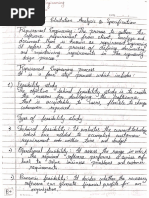 Elicitation Analysis & Specification
Requirement Engineering The process to gather the
software requirement from client, analyze and
document them is known as requirement engineering
It refers to the process of defining, documenting
and maintaining requirement in the engineering
design process.
Requirement Engineering process:-
It is a four step process which include:-
1) Feasibility study
The objective behind the feasibility study
is to create the reasons for developing the
software that is acceptable to users, flexible to change
and conformable to established
Type of feasibility study
1. Technical feasibility: It evaluates the current technology
which are needed to accomplished customer
requirement within the time and budget.
2. Operational feasibility: It assess the range in which
the required software performs a series of
levels to solve business problems and customer
requirements.
3. Economic feasibility: It decides whether the necessary
software can generate financial profits for an
organization.